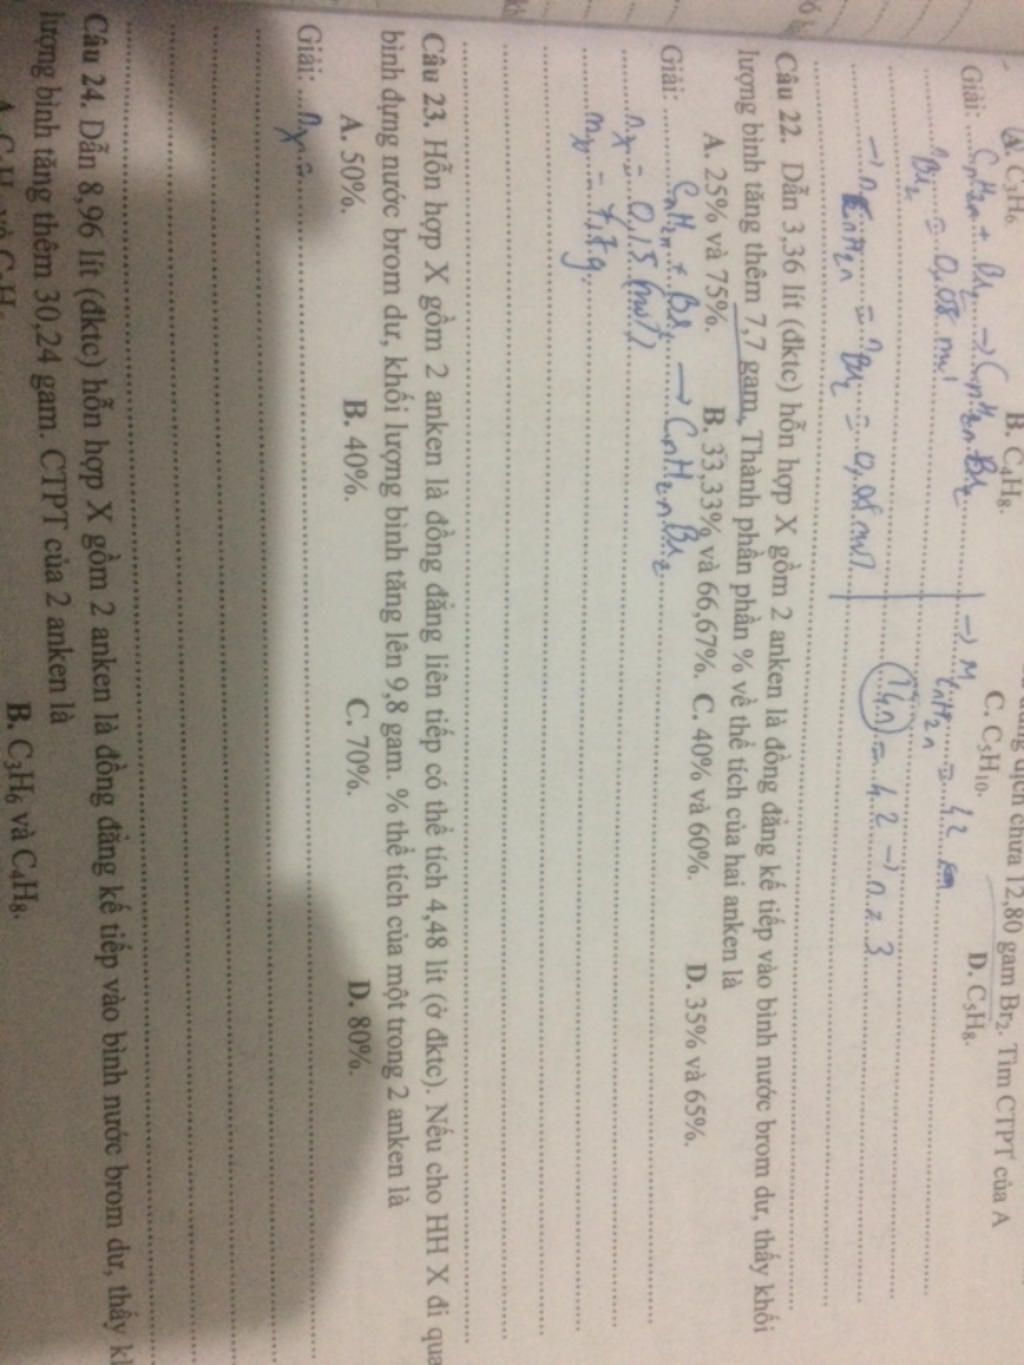 A. C₃H₆ B. C₄H₈. C. C₅H₁₀. D. C₅H₈.
dịch chứa 12,80 gam Br₂. Tìm CTPT của A
Giải: CnH2n + Br2 → CnH2nBr2 → M CnH2n = 42
nBr2 = 0,08 mol (14n) = 42 → n = 3
→ nCnH2n = nBr2 = 0,08 mol
Câu 22. Dẫn 3,36 lít (đktc) hỗn hợp X gồm 2 anken là đồng đẳng kế tiếp vào bình nước brom dư, thấy khối
lượng bình tăng thêm 7,7 gam. Thành phần phần % về thể tích của hai anken là
A. 25% và 75%. B. 33,33% và 66,67%. C. 40% và 60%. D. 35% và 65%.
Giải: CnH2n + Br2 → CnH2nBr2
nX = 0,15 (mol)
mX = 7,7g
Câu 23. Hỗn hợp X gồm 2 anken là đồng đẳng liên tiếp có thể tích 4,48 lít (ở đktc). Nếu cho HH X đi qua
bình đựng nước brom dư, khối lượng bình tăng lên 9,8 gam. % thể tích của một trong 2 anken là
A. 50%. B. 40%. C. 70%. D. 80%.
Giải: nX =
Câu 24. Dẫn 8,96 lít (đktc) hỗn hợp X gồm 2 anken là đồng đẳng kế tiếp vào bình nước brom dư, thấy
lượng bình tăng thêm 30,24 gam. CTPT của 2 anken là
B. C₃H₆ và C₄H₈.